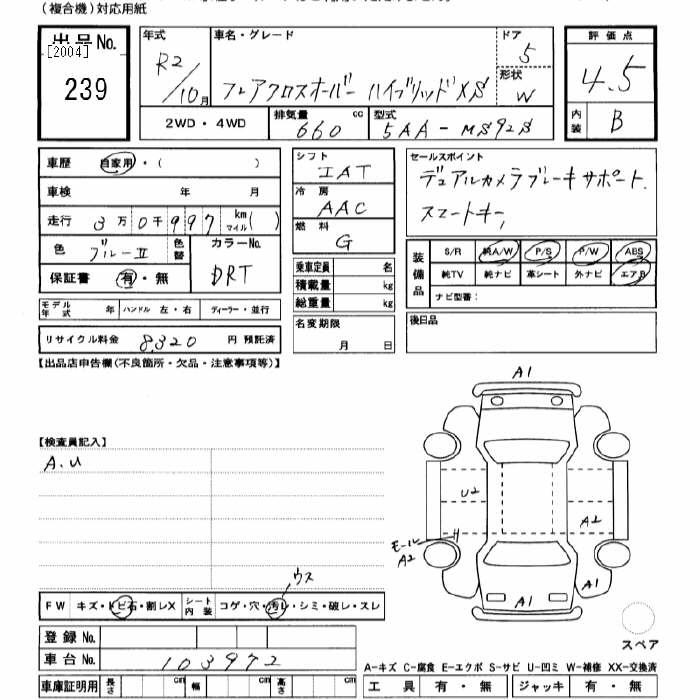 (複合機)対応用紙
出品 No. [2004] 239
年式 R2/10月
車名・グレード フレアクロスオーバー ハイブリッドXS
ドア 5
形状 W
評価点 4.5
内装 B
2WD・4WD
排気量 660 cc
型式 5AA-MS92S
車歴 自家用・( )
車検 年 月
走行 3万0千997 km マイル( )
色 ブルーII 色替
カラーNo. DRT
保証書 有・無
モデル年式 年 ハンドル 左・右 ディーラー・並行
リサイクル料金 8,320 円 預託済
シフト IAT
冷房 AAC
燃料 G
乗車定員 名
積載量 kg
総重量 kg
名変期限 月 日
セールスポイント
デュアルカメラブレーキサポート.
スマートキー,
装備品 S/R 純A/W P/S P/W ABS
純TV 純ナビ 革シート 外ナビ エアB
ナビ型番:
後日品
【出品店申告欄(不良箇所・欠品・注意事項等)】
【検査員記入】
A.U
A1
U2
A2
モール A2
A1
A1
ウス
FW キズ・トビ石・割レX シート内装 コゲ・穴・汚レ・シミ・破レ・スレ
登録 No.
車台 No. 103972
車庫証明用 長さ cm 幅 cm 高さ cm
スペア
A-キズ C-腐食 E-エクボ S-サビ U-凹ミ W-補修 XX-交換済
工具 有・無 ジャッキ 有・無